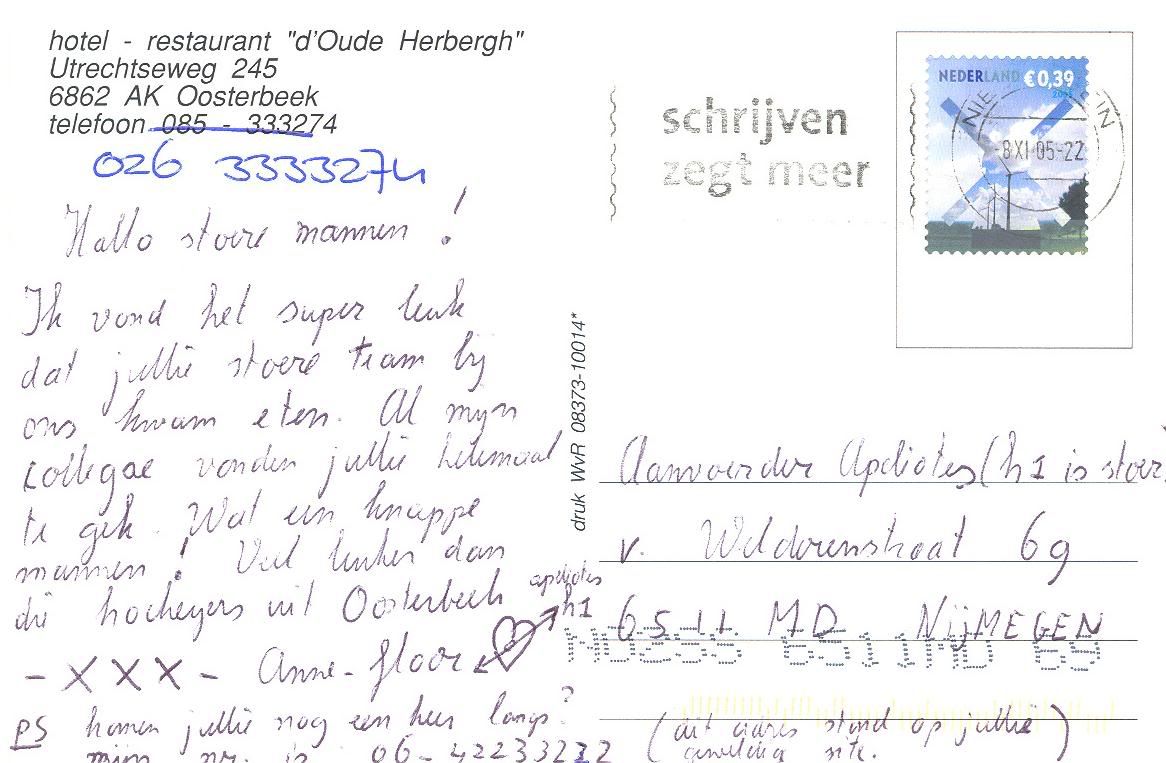 hotel - restaurant "d'Oude Herbergh"
Utrechtseweg 245
6862 AK Oosterbeek
telefoon 085 - 333274
026 3333274
Hallo stoere mannen !
Ik vond het super leuk
dat jullie stoere team bij
ons kwam eten. Al mijn
collegae vonden jullie helemaal
te gek. Wat een knappe
mannen ! Veel leuker dan
die hockeyers uit Oosterbeek
- X X X - Anne-floor
apeliotes
h1
PS komen jullie nog een keer langs?
mijn nr. is 06-42233222
druk WvR 08373-10014*
schrijven
zegt meer
NEDERLAND €0,39
2005
-8XI 05-22
Aanvoerder Apeliotes (h1 is stoer
v. Welderenstraat 69
6511 MD NijMEGEN
6511MD 69
(dit adres stond op jullie
geweldige site.)